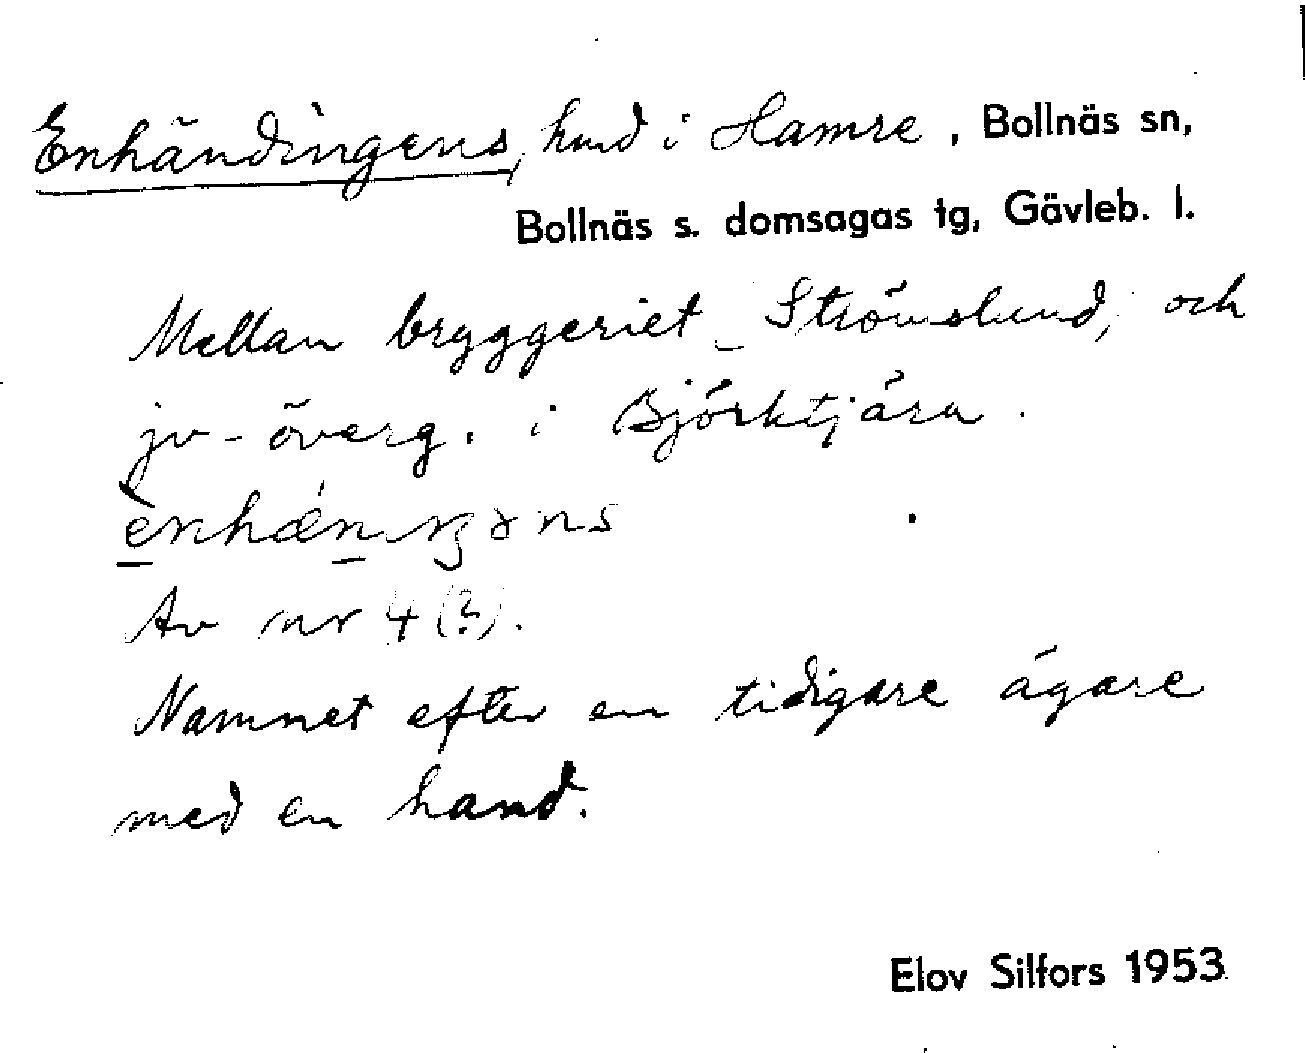 Enhändingens, hmd i Hamre. Bollnäs sn,
Bollnäs s. domsagas tg, Gävleb. l.
Mellan bryggeriet, Strömslund, och
jv-överg. i Björktjära.
Av nr 4 (?).
Namnet efter en tidigare ägare
med en hand.
Elov Silfors 1953